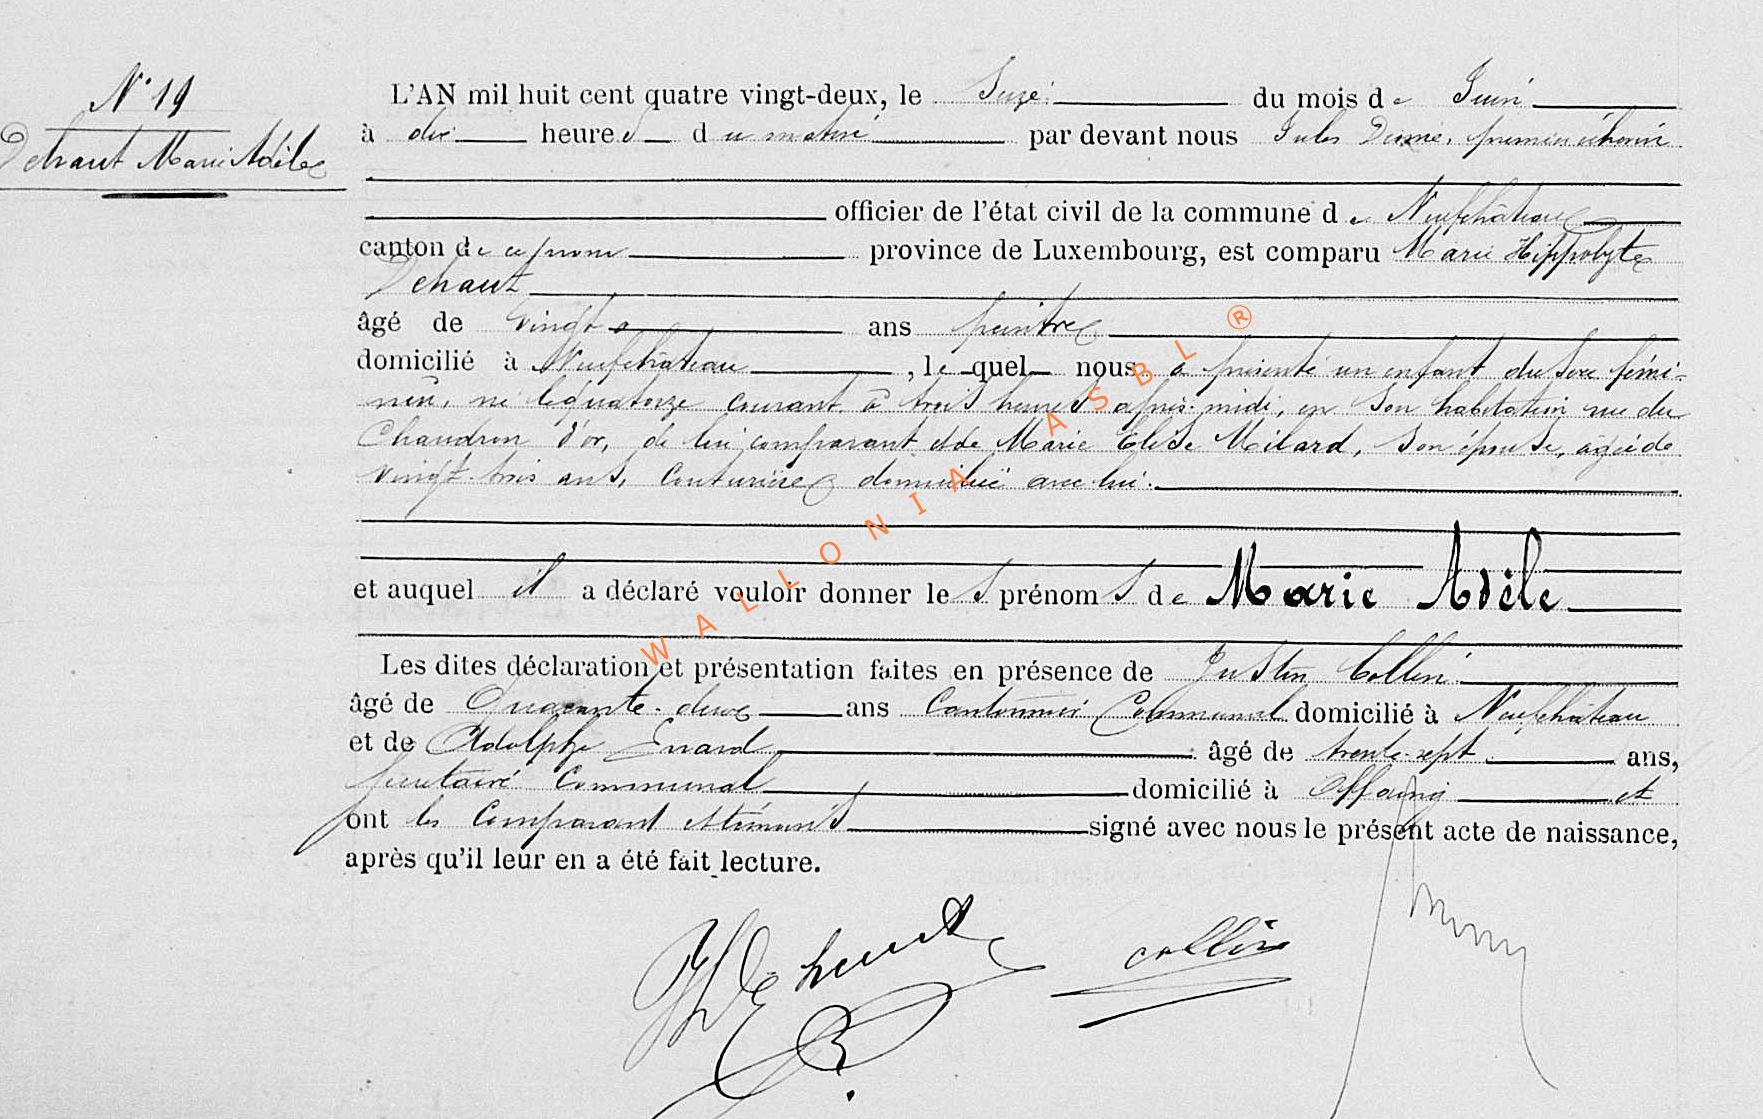 N° 19
Dehaut Marie Adèle
L'AN mil huit cent quatre vingt-deux, le Seize du mois de Juin
à dix heures du matin par devant nous Jules premier échevin
officier de l'état civil de la commune de Neufchâteau
canton de ce nom province de Luxembourg, est comparu Marie Hippolyte
Dehaut
âgé de vingt ans peintre
domicilié à Neufchâteau, lequel nous a présenté un enfant du sexe fémi-
nin, né le quatorze courant à trois heures après-midi, en son habitation rue du
Chaudron d'or, de lui comparant et de Marie Elise Milard, son épouse, agée de
vingt-trois ans, couturière domiciliée avec lui.
et auquel il a déclaré vouloir donner les prénoms de Marie Adèle
Les dites déclaration et présentation faites en présence de Justin Collin
âgé de Quarante-deux ans Cantonnier Communal domicilié à Neufchâteau
et de Adolphe Evrard âgé de trente-sept ans,
secrétaire Communal domicilié à Offaing et
ont les Comparant et témoins signé avec nous le présent acte de naissance,
après qu'il leur en a été fait lecture.
HDehaut collin
WALLONIA ASBL ®